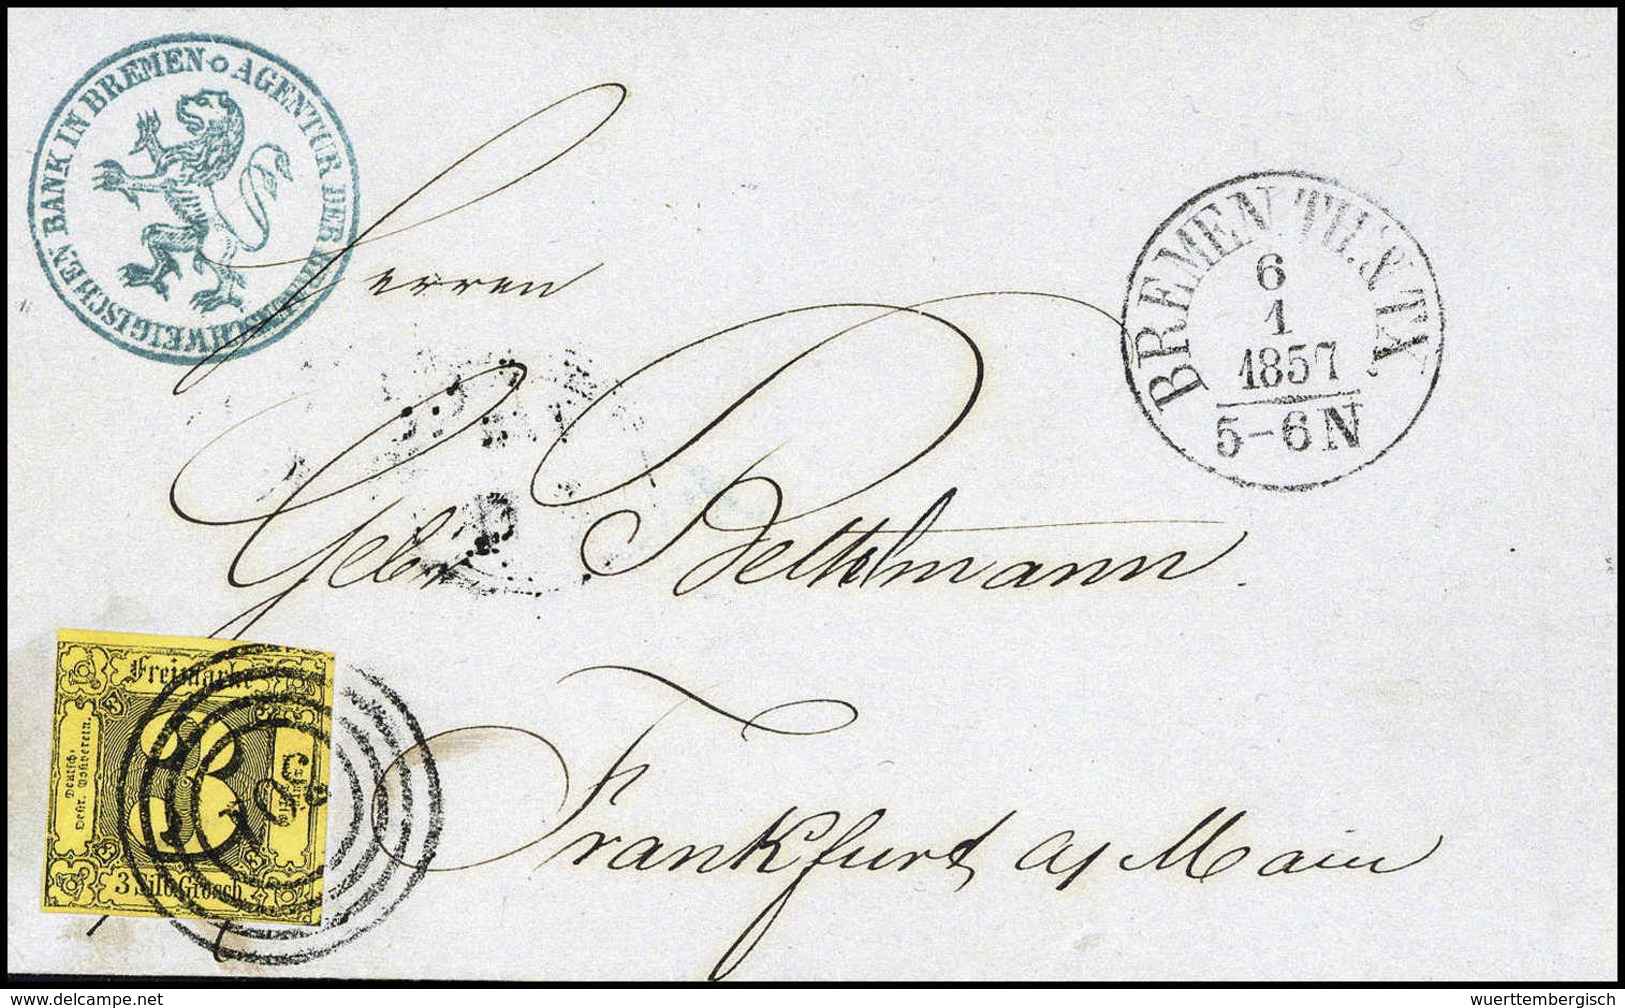 AGENTUR DER BRAUNSCHWEIGISCHEN BANK IN BREMEN
BREMEN TH. & TX.
6
1
1857
5-6 N
Herren
Gebr Bethmann
Frankfurt a/ Main
Freimarke
Deutsch-
Oestr. Postverein.
3
3 Silb Grosch
www.delcampe.net
wuerttembergisch